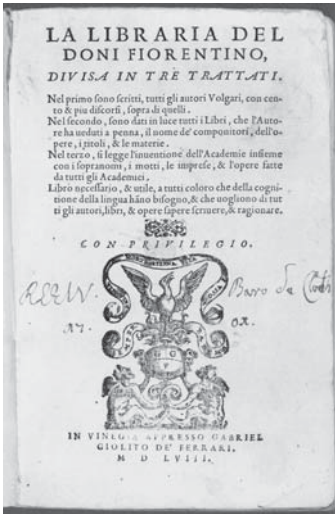 LA LIBRARIA DEL
DONI FIORENTINO,
DIVISA IN TRE TRATTATI.
Nel primo sono scritti, tutti gli autori Volgari, con cen-
to & piu discorsi, sopra di quelli.
Nel secondo, sono dati in luce tutti i Libri, che l'Auto-
re ha ueduti a penna, il nome de' componitori, dell'o-
pere, i titoli, & le materie.
Nel terzo, si legge l'inuentione dell'Academie insieme
con i sopranomi, i motti, le imprese, & l'opere fatte
da tutti gli Academici.
Libro necessario, & utile, a tutti coloro che della cogni-
tione della lingua hāno bisogno, & che uogliono di tut
ti gli autori, libri, & opere sapere scriuere, & ragionare.
CON PRIVILEGIO.
Baro da
IN VINEGIA APPRESSO GABRIEL
GIOLITO DE' FERRARI.
M D LVIII.